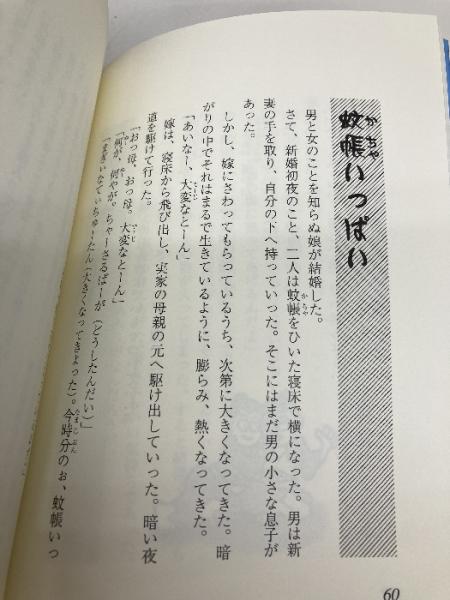 蚊帳いっぱい
かちゃ
男と女のことを知らぬ娘が結婚した。
さて、新婚初夜のこと、二人は蚊帳をひいた寝床で横になった。男は新
かちゃ
妻の手を取り、自分の下へ持っていった。そこにはまだ男の小さな息子が
あった。
しかし、嫁にさわってもらっているうち、次第に大きくなってきた。暗
がりの中でそれはまるで生きているように、膨らみ、熱くなってきた。
「あいなー、大変なとーん」
嫁は、寝床から飛び出し、実家の母親の元へ駆け出していった。暗い夜
道を駆けて行った。
「おっ母、おっ母。大変なとーん」
「何が、何やが。ちゃーさるばーが（どうしたんだい）」
「まぎぃなてぃちゅーたん（大きくなってきよった）。今時分のぉ、蚊帳いっ
60